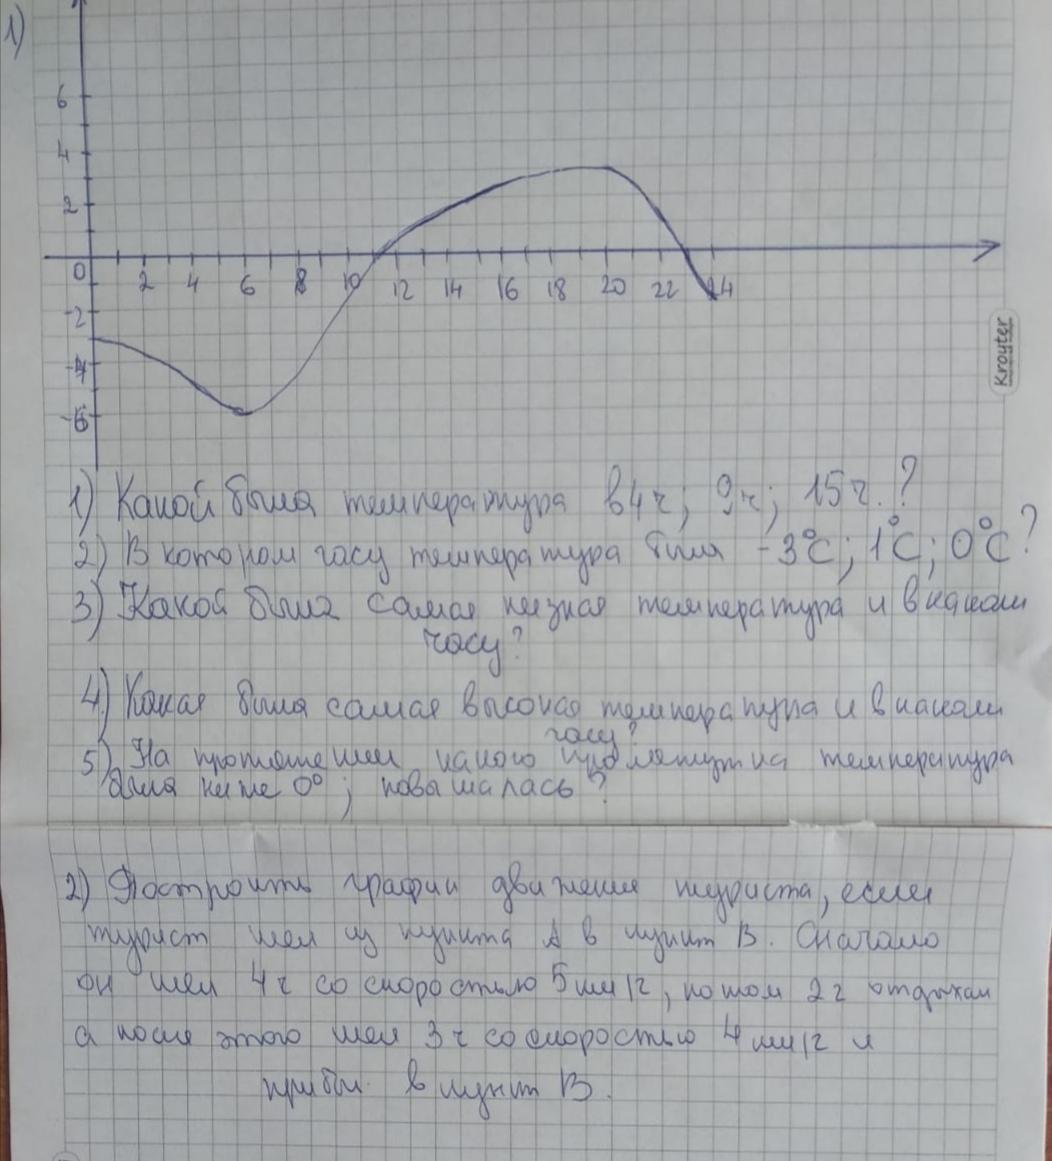 1)
6
4
2
0
2 4 6 8 10 12 14 16 18 20 22 24
-2
-4
-6
Kroyter
1) Какой была температура в 4 ч; 9 ч; 15 ч.?
2) В котором часу температура была -3°C; 1°C; 0°C?
3) Какой была самая низкая температура и в каком
часу?
4) Какая была самая высокая температура и в каком
часу?
5) На протяжении какого промежутка температура
была ниже 0°; повышалась?
2) Построить график движения туриста, если
турист шел из пункта А в пункт В. Сначало
он шел 4 ч со скоростью 5 км/г, потом 2 г отдыхал
а после этого шел 3 ч со скоростью 4 км/г и
прибыл в пункт В.